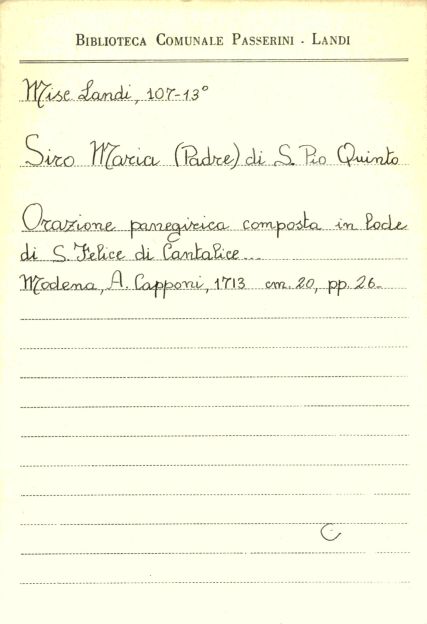 BIBLIOTECA COMUNALE PASSERINI - LANDI
Misc Landi, 107-13°
Siro Maria (Padre) di S. Pio Quinto
Orazione panegirica composta in lode
di S. Felice di Cantalice...
Modena, A. Capponi, 1713 cm. 20, pp. 26.
C